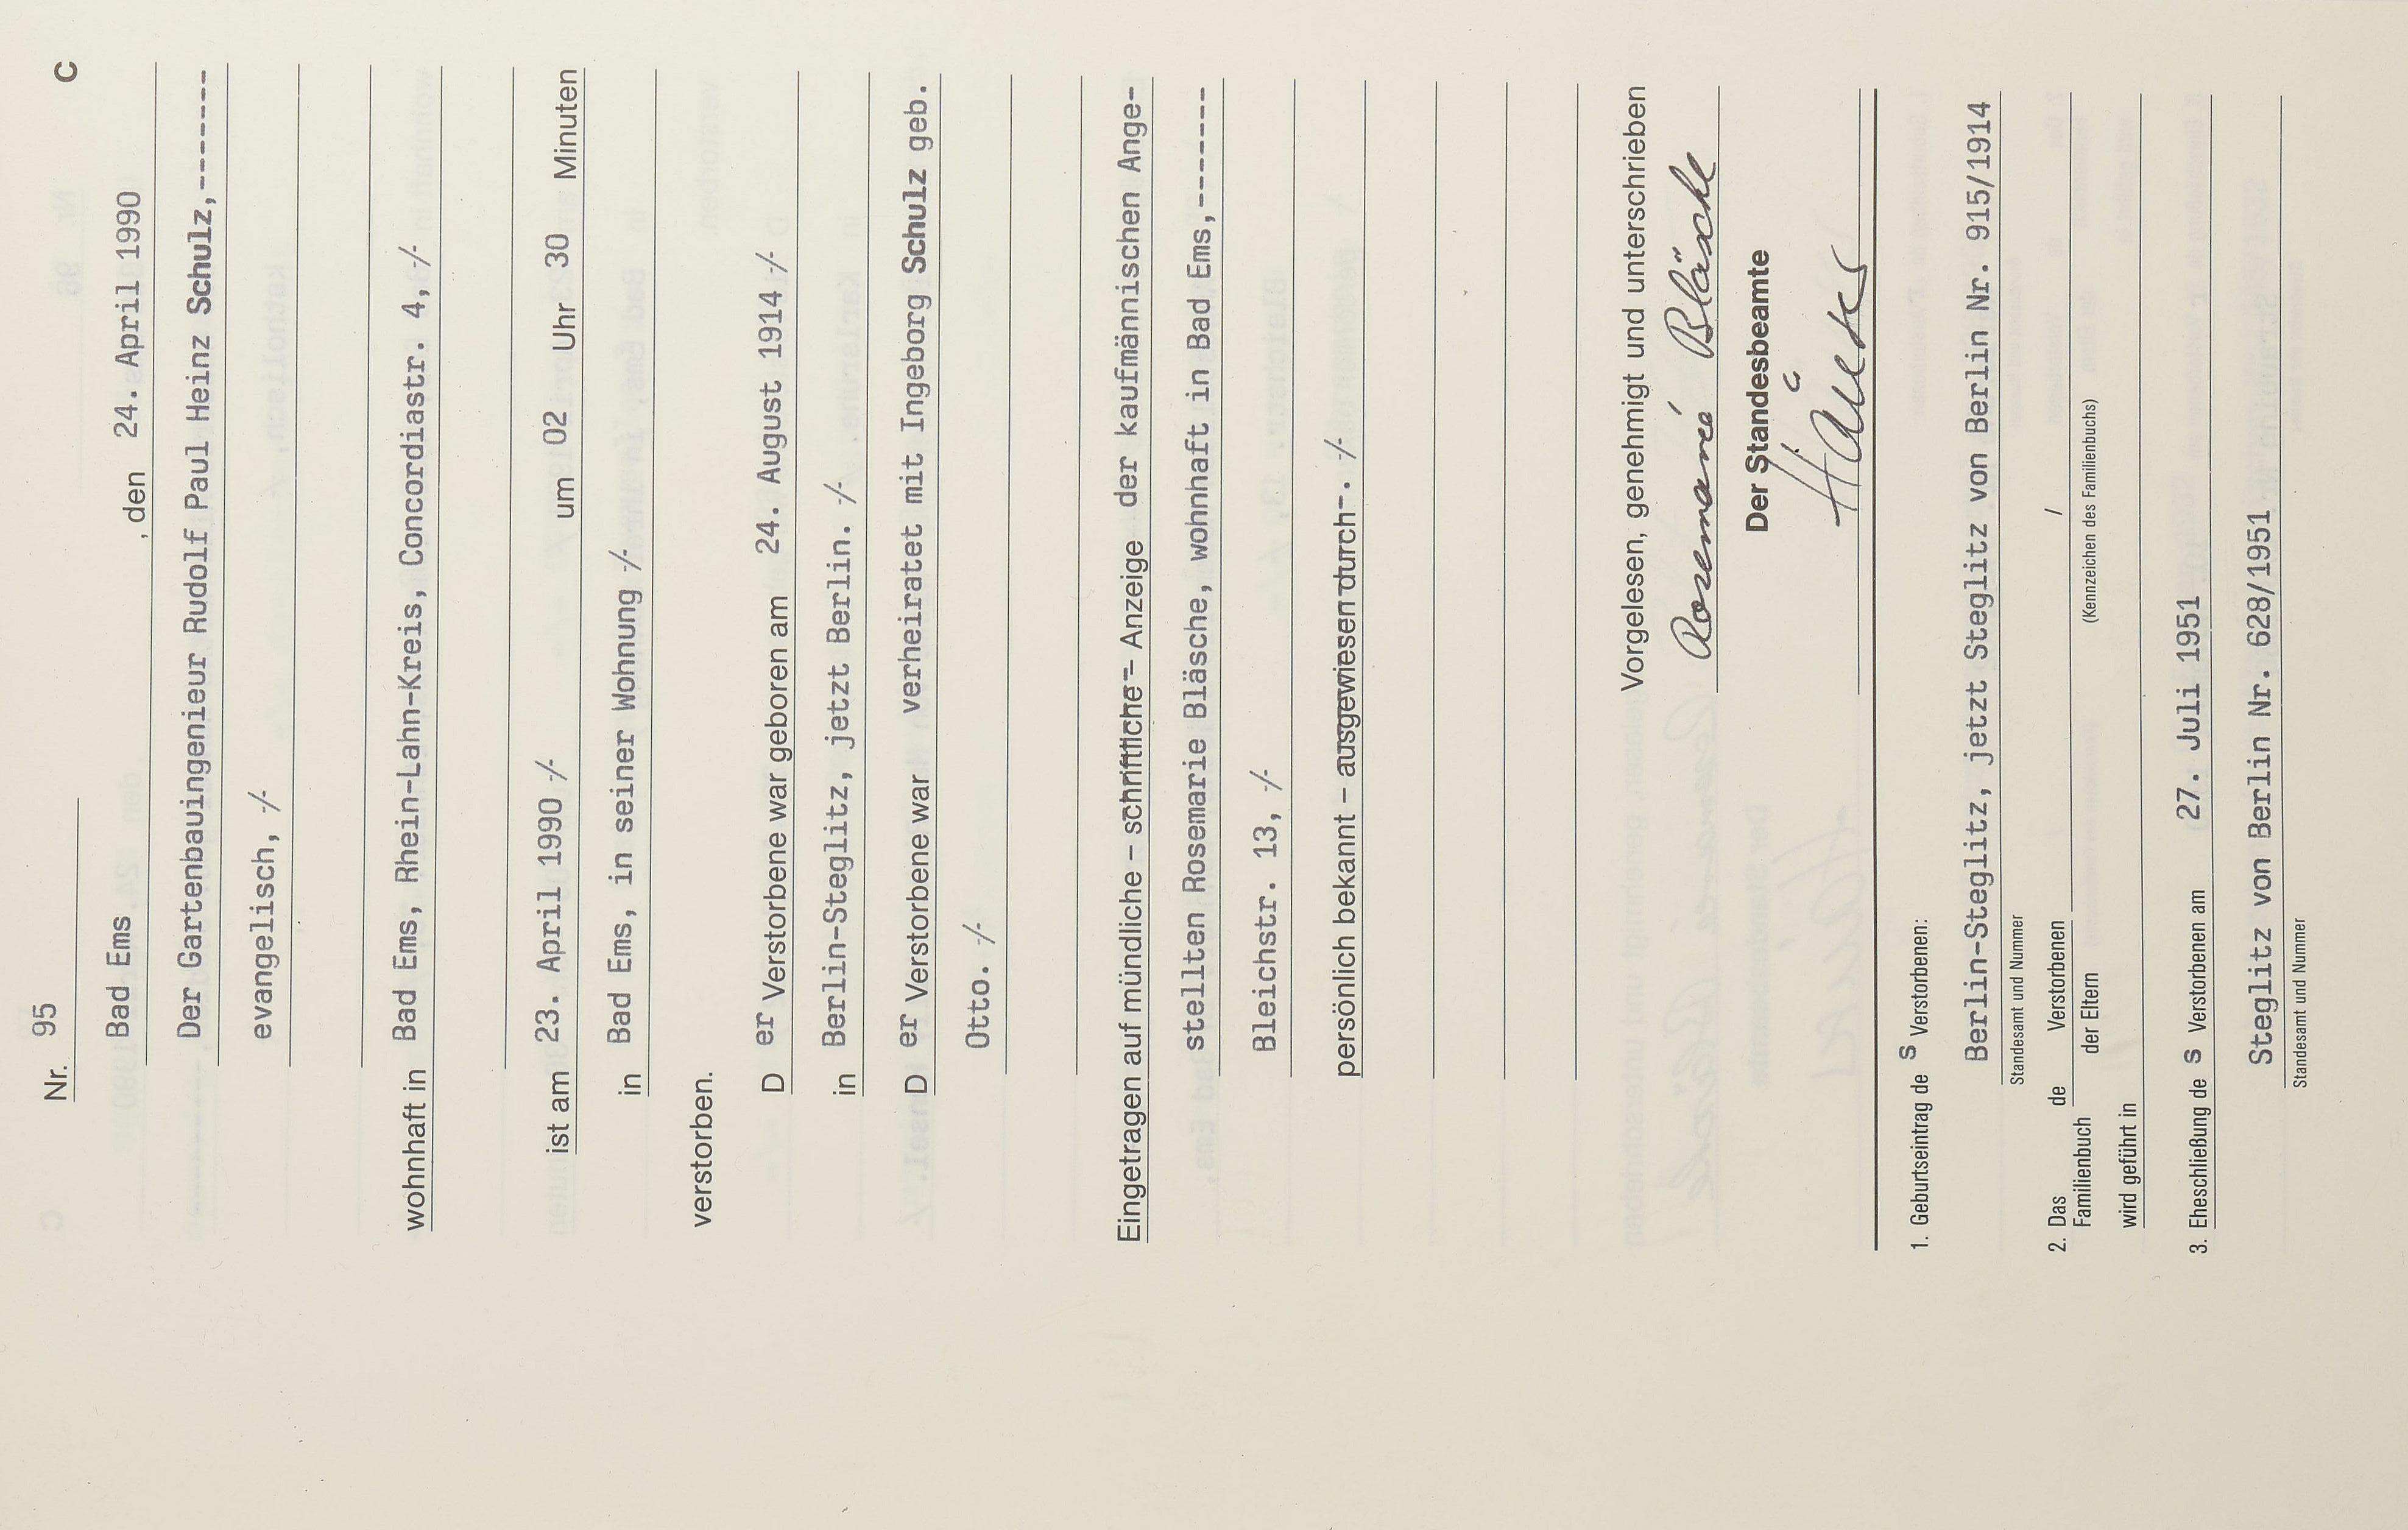 C
Nr. 95
Bad Ems ,den 24. April 1990
Der Gartenbauingenieur Rudolf Paul Heinz Schulz,-------
evangelisch, -/-
wohnhaft in Bad Ems, Rhein-Lahn-Kreis, Concordiastr. 4,-/-
ist am 23. April 1990 -/- um 02 Uhr 30 Minuten
in Bad Ems, in seiner Wohnung -/-
verstorben.
D er Verstorbene war geboren am 24. August 1914 -/-
in Berlin-Steglitz, jetzt Berlin. -/-
D er Verstorbene war verheiratet mit Ingeborg Schulz geb.
Otto. -/-
Eingetragen auf mündliche – schriftliche – Anzeige der kaufmännischen Ange-
stellten Rosemarie Bläsche, wohnhaft in Bad Ems,-------
Bleichstr. 13, -/-
persönlich bekannt – ausgewiesen durch-. -/-
Vorgelesen, genehmigt und unterschrieben
Rosemarie Bläsche
Der Standesbeamte
1. Geburtseintrag de s Verstorbenen:
Berlin-Steglitz, jetzt Steglitz von Berlin Nr. 915/1914
Standesamt und Nummer
2. Das de Verstorbenen /
Familienbuch der Eltern (Kennzeichen des Familienbuchs)
wird geführt in
3. Eheschließung de s Verstorbenen am 27. Juli 1951
Steglitz von Berlin Nr. 628/1951
Standesamt und Nummer